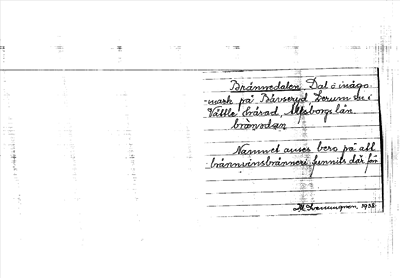 Brännedalen. Dal å inägo-
mark på Bårseryd, Lerum sn i
Vättle härad, Älfsborgs län.
brànədan
Namnet anses bero på att
brännvinsbränneri funnits där för
1938